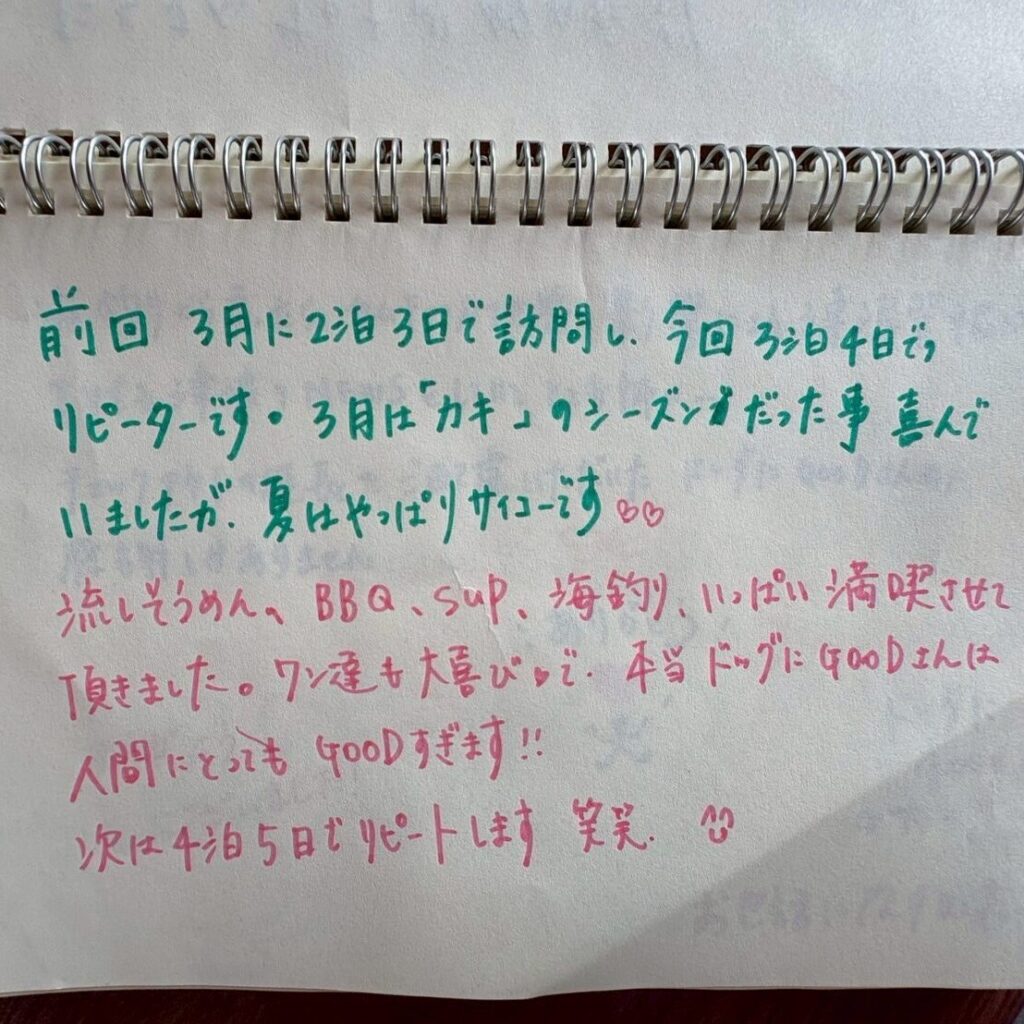 前回 3月に2泊3日で訪問し、今回3泊4日で、
リピーターです。3月は「カキ」のシーズンだった事 喜んで
いましたが、夏はやっぱりサイコーです♡♡
流しそうめん、BBQ、SUP、海釣り、いっぱい 満喫させて
頂きました。ワン達も大喜び♡で、本当 ドッグにGOODさんは
人間にとっても GOODすぎます!!
次は4泊5日でリピートします 笑笑.